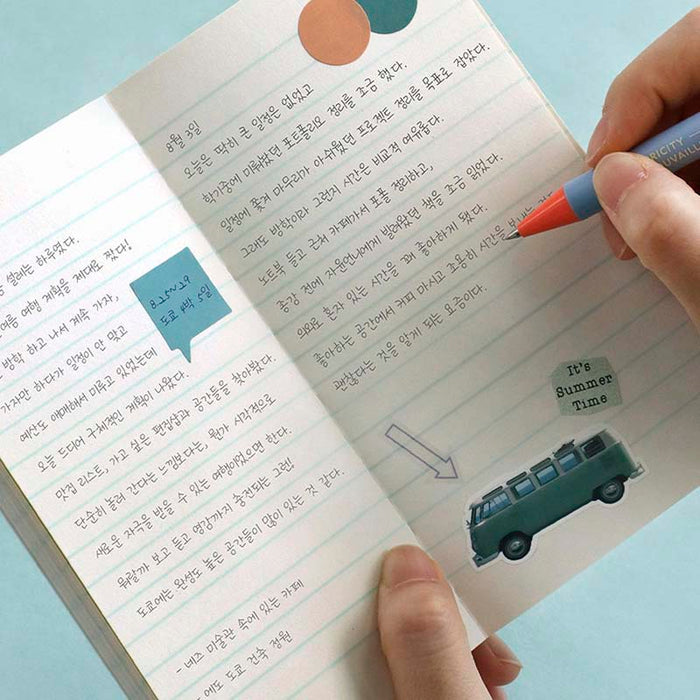 설레는 하루였다.
여름 여행 계획을 제대로 짰다!
방학 하고 나서 계속 가자,
가자만 하다가 일정이 안 맞고
예산도 애매해서 미루고 있었는데
오늘 드디어 구체적인 계획이 나왔다.
맛집 리스트, 가고 싶은 편집샵과 공간들을 찾아봤다.
단순히 놀러 간다는 느낌보다는, 뭔가 시각적으로
새로운 자극을 받을 수 있는 여행이었으면 한다.
뭐랄까 보고 듣고 영감까지 충전되는 그런!
도쿄에는 완성도 높은 공간들이 많이 있는 것 같다.
- 네즈 미술관 속에 있는 카페
에도 도쿄 건축 정원
8.25~29
도쿄 4박 5일
8월 3일
오늘은 딱히 큰 일정은 없었고
학기중에 미뤄놨던 포트폴리오 정리를 조금 했다.
일정에 쫓겨 마무리가 아쉬웠던 프로젝트 정리를 목표로 잡았다.
그래도 방학이라 그런지 시간은 비교적 여유롭다.
노트북 들고 근처 카페가서 포폴 정리하고,
종강 전에 자윤언니에게 빌려왔던 책을 조금 읽었다.
의외로 혼자 있는 시간을 꽤 좋아하게 됐다.
좋아하는 공간에서 커피 마시고 조용히 시간을 보내는
괜찮다는 것을 알게 되는 요즘이다.
It's
Summer
Time